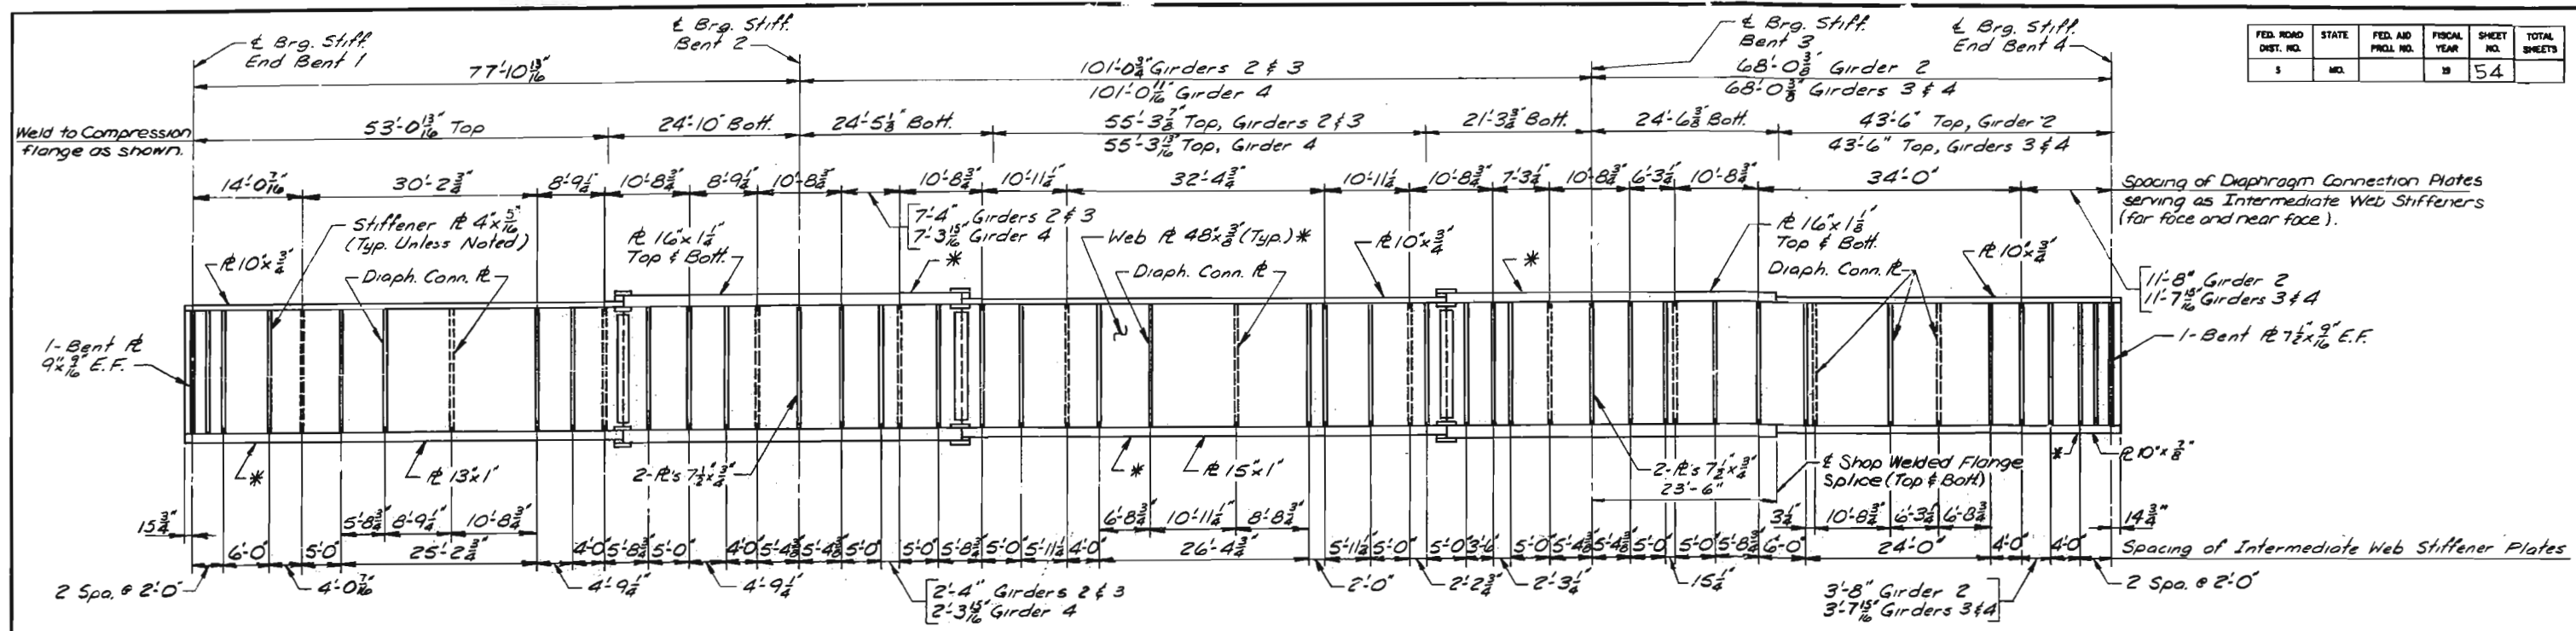 ℄ Brg. Stiff.
End Bent 1
℄ Brg. Stiff.
Bent 2
℄ Brg. Stiff.
Bent 3
℄ Brg. Stiff.
End Bent 4
FED. ROAD DIST. NO.
STATE
FED. AID PROJ. NO.
FISCAL YEAR
SHEET NO.
TOTAL SHEETS
5
MO.
19
54
77'-10 13/16"
101'-0 3/4" Girders 2 & 3
101'-0 11/16" Girder 4
68'-0 3/8" Girder 2
68'-0 3/8" Girders 3 & 4
Weld to Compression
flange as shown.
53'-0 13/16" Top
24'-10" Bott.
24'-5 1/8" Bott.
55'-3 7/8" Top, Girders 2 & 3
55'-3 13/16" Top, Girder 4
21'-3 3/4" Bott.
24'-6 3/8" Bott.
43'-6" Top, Girder 2
43'-6" Top, Girders 3 & 4
14'-0 7/16"
30'-2 3/4"
8'-9 1/4"
10'-8 3/4"
8'-9 1/4"
10'-8 3/4"
10'-8 3/4"
10'-11 1/4"
32'-4 3/4"
10'-11 1/4"
10'-8 3/4"
7'-3 1/4"
10'-8 3/4"
6'-3 1/4"
10'-8 3/4"
34'-0"
Spacing of Diaphragm Connection Plates
serving as Intermediate Web Stiffeners
(far face and near face).
7'-4" Girders 2 & 3
7'-3 15/16" Girder 4
11'-8" Girder 2
11'-7 15/16" Girders 3 & 4
Stiffener ℞ 4"x 5/16"
(Typ. Unless Noted)
℞ 10"x 3/4"
Diaph. Conn. ℞
℞ 16"x 1 1/4"
Top & Bott.
*
Web ℞ 48"x 3/8" (Typ.) *
Diaph. Conn. ℞
℞ 10"x 3/4"
*
℞ 16"x 1 1/8"
Top & Bott.
Diaph. Conn. ℞
℞ 10"x 3/4"
1-Bent ℞
9"x 9/16" E.F.
1-Bent ℞ 7 1/2"x 9/16" E.F.
*
℞ 13"x 1"
2-℞'s 7 1/2"x 3/4"
*
℞ 15"x 1"
2-℞'s 7 1/2"x 3/4"
23'-6"
℄ Shop Welded Flange
Splice (Top & Bott.)
*
℞ 10"x 7/8"
15 3/4"
5'-8 3/4"
8'-9 1/4"
10'-8 3/4"
6'-8 3/4"
10'-11 1/4"
8'-8 3/4"
3 1/4"
10'-8 3/4"
6'-3 1/4"
6'-8 3/4"
14 3/4"
6'-0"
5'-0"
25'-2 3/4"
4'-0"
5'-8 3/4"
5'-0"
4'-0"
5'-4 3/8"
5'-4 3/8"
5'-0"
5'-0"
5'-8 3/4"
5'-0"
5'-11 1/4"
4'-0"
26'-4 3/4"
5'-11 1/4"
5'-0"
5'-0"
3'-6"
5'-0"
5'-4 3/8"
5'-4 3/8"
5'-0"
5'-0"
5'-8 3/4"
6'-0"
24'-0"
4'-0"
4'-0"
Spacing of Intermediate Web Stiffener Plates
2 Spa. @ 2'-0"
4'-0 7/16"
4'-9 1/4"
4'-9 1/4"
2'-4" Girders 2 & 3
2'-3 15/16" Girder 4
2'-0"
2'-2 3/4"
2'-3 1/4"
15 1/4"
3'-8" Girder 2
3'-7 15/16" Girders 3 & 4
2 Spa. @ 2'-0"